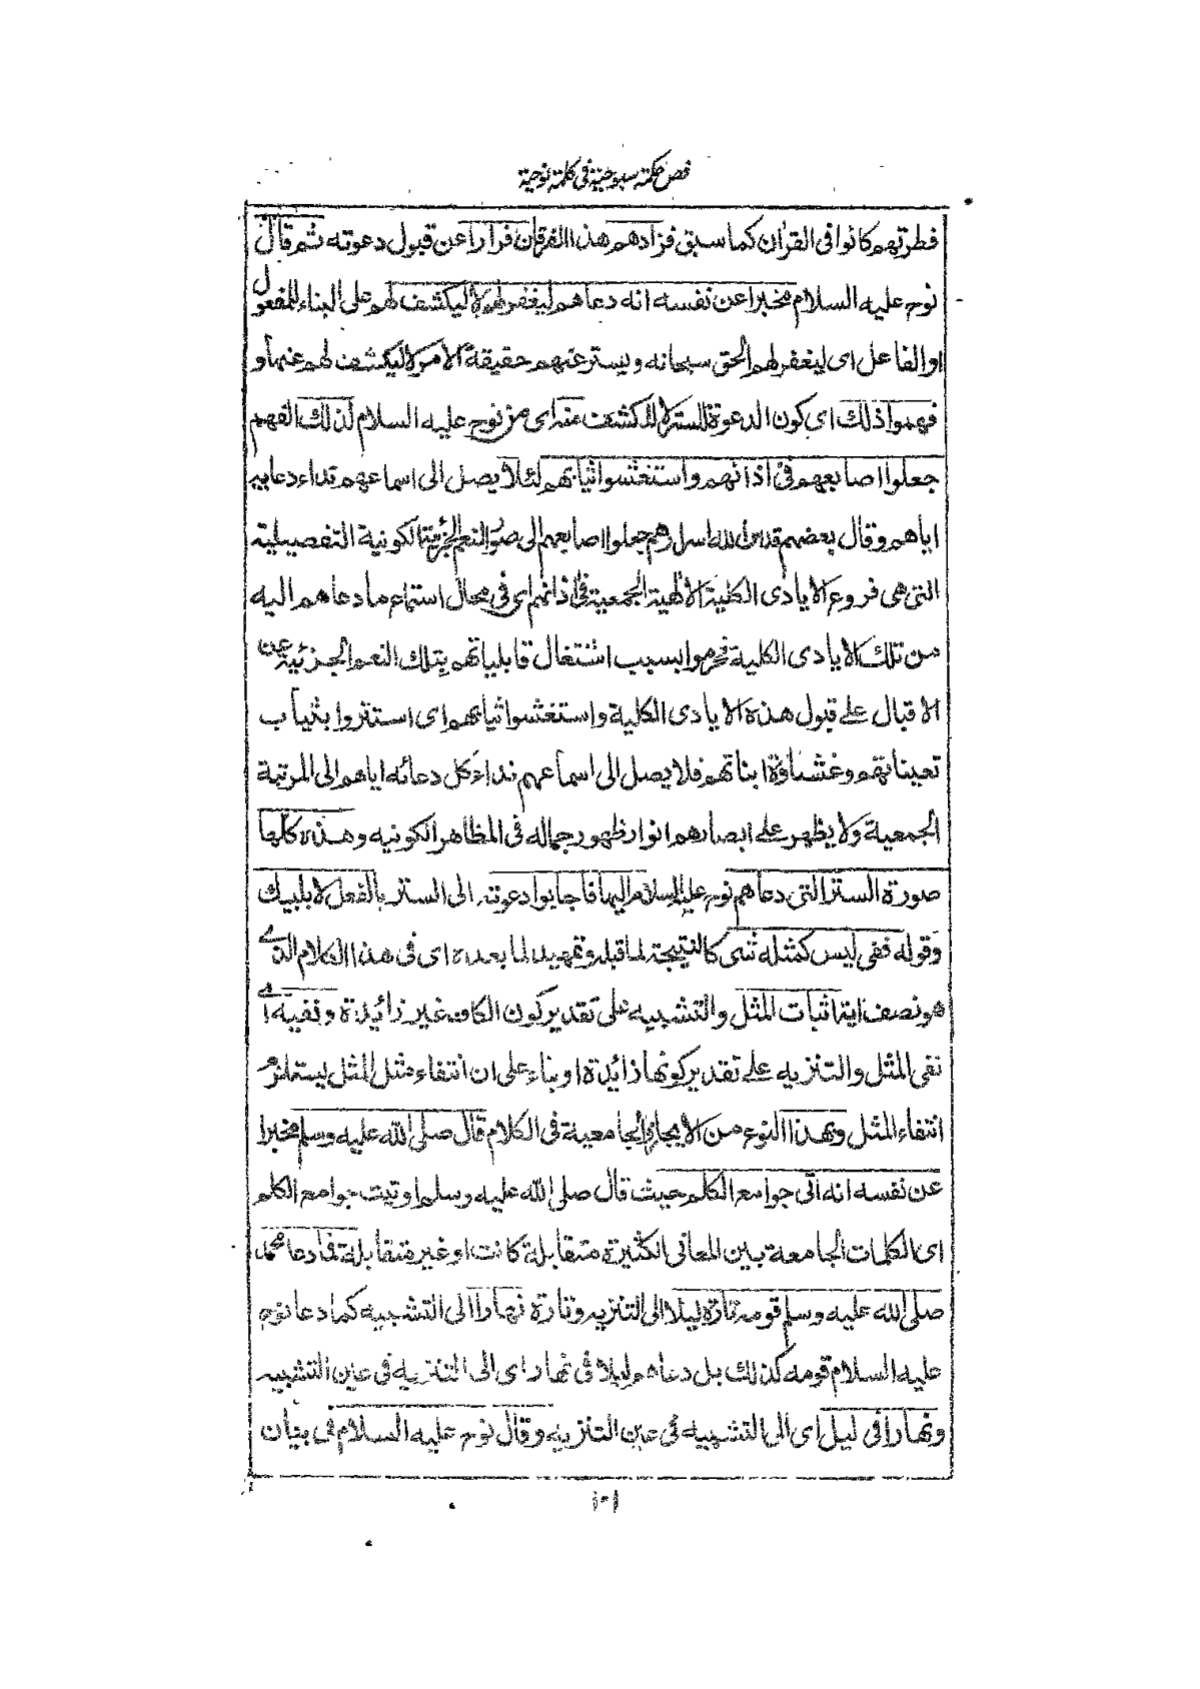 فص حكمة سبوحية في كلمة نوحية
فطرتهم كانوا فى القرأن كما سبق فزادهم هذا الفرقان فرارا عن قبول دعوته ثم قال
نوح عليه السلام مخبرا عن نفسه انه دعاهم ليغفر لهم لا ليكشف لهم على البناء للمفعول
او الفاعل اى ليغفر لهم الحق سبحانه ويستر عنهم حقيقة الامر لا ليكشف لهم عنها و
فهموا ذلك اى كون الدعوة للستر لا للكشف منه اى من نوح عليه السلام لذلك الفهم
جعلوا اصابعهم فى اذانهم واستغشوا ثيابهم لئلا يصل الى اسماعهم نداء دعايه
اياهم وقال بعضهم قدس الله اسرارهم جعلوا اصابعهم الى صور النعم الجزئية الكونية التفصيلية
التى هى فروع الايادى الكلية الالهية الجمعية فى اذانهم اى فى محال استماع ما دعاهم اليه
من تلك الايادى الكلية فحرموا بسبب اشتغال قابلياتهم بتلك النعم الجزئية عن
الاقبال على قبول هذه الايادى الكلية واستغشوا ثيابهم اى استتروا بثياب
تعيناتهم وغشاوة انياتهم فلا يصل الى اسماعهم نداء كل دعائه اياهم الى المرتبة
الجمعية ولا يظهر على ابصارهم انوار ظهور جماله فى المظاهر الكونيه وهذه كلها
صورة الستر التى دعاهم نوح عليه السلام اليها فاجابوا دعوته الى الستر بالفعل لا بلبيك
وقوله ففى ليس كمثله شى كالنتيجة لما قبله وتمهيد لما بعده اى فى هذا الكلام الذى
هو نصف اية اثبات المثل والتشبيه على تقدير كون الكاف غير زائدة ونفيه اى
نفى المثل والتنزيه على تقدير كونها زائدة او بناء على ان انتفاء مثل المثل يستلزم
انتفاء المثل وبهذا النوع من الايجاز والجامعية فى الكلام قال صلى الله عليه وسلم مخبرا
عن نفسه انه اتى جوامع الكلم حيث قال صلى الله عليه وسلم اوتيت جوامع الكلم
اى الكلمات الجامعة بين المعانى الكثيرة متقابلة كانت او غير متقابلة فما دعا محمد
صلى الله عليه وسلم قومه تارة ليلا الى التنزيه وتارة نهارا الى التشبيه كما دعا نوح
عليه السلام قومه كذلك بل دعاهم ليلا فى نهار اى الى التنزيه فى عين التشبيه
ونهارا فى ليل اى الى التشبيه فى عين التنزيه وقال نوح عليه السلام فى بيان
١٠١